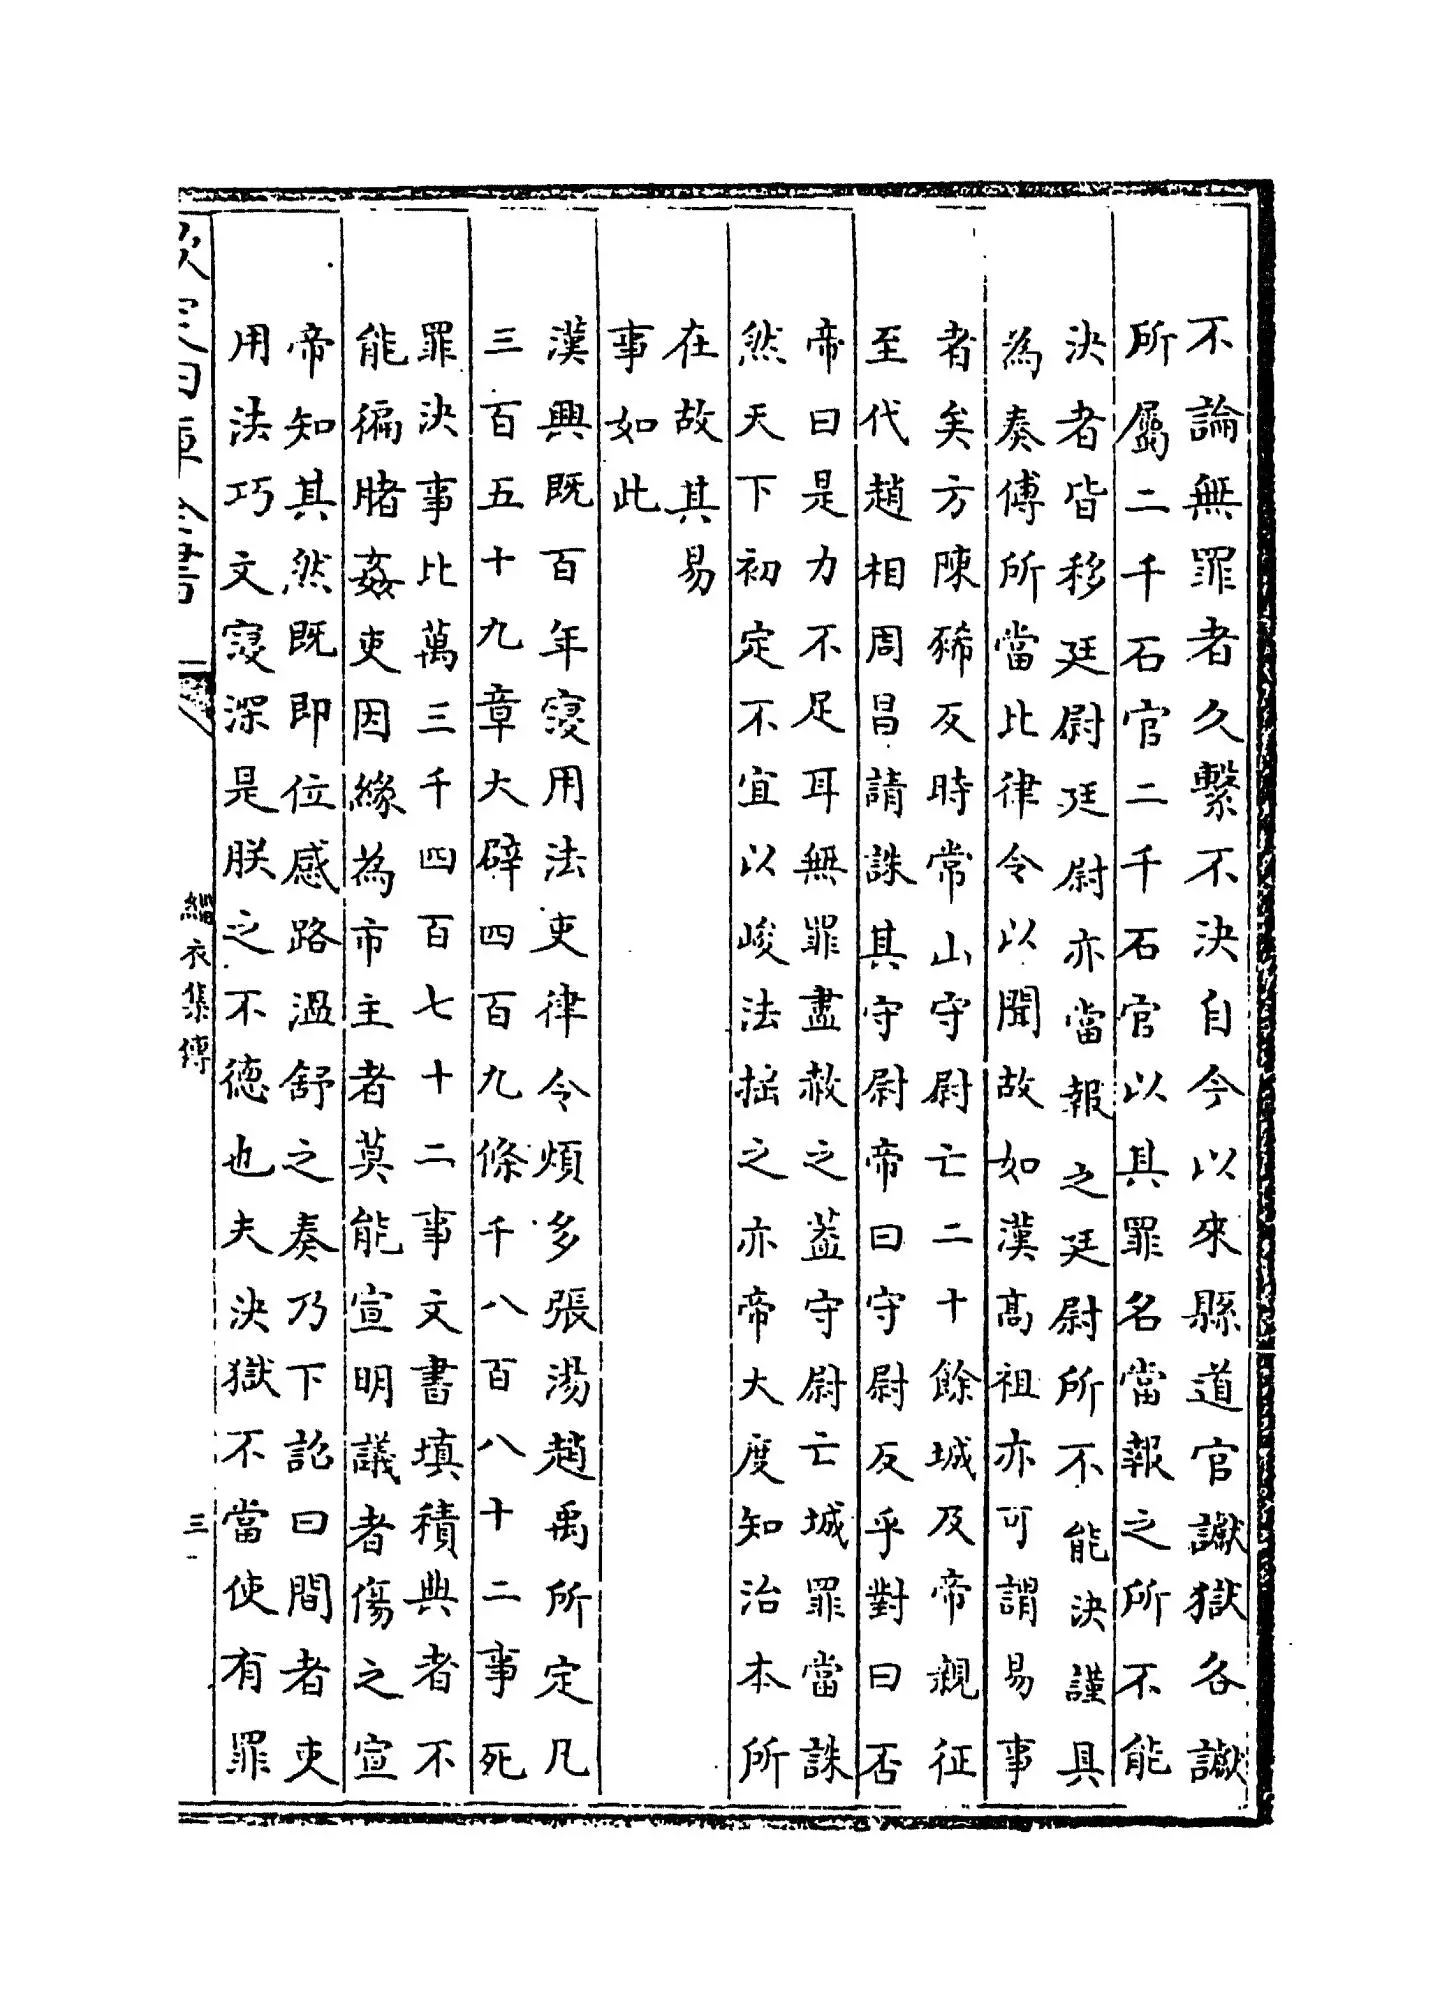 不論無罪者久繫不決自今以來縣道官讞獄各讞
所屬二千石官二千石官以其罪名當報之所不能
決者皆移廷尉廷尉亦當報之廷尉所不能決謹具
為奏傅所當比律令以聞故如漢高祖亦可謂易事
者矣方陳豨反時常山守尉亡二十餘城及帝親征
至代趙相周昌請誅其守尉帝曰守尉反乎對曰否
帝曰是力不足耳無罪盡赦之葢守尉亡城罪當誅
然天下初定不宜以峻法拯之亦帝大度知治本所
在故其易
事如此
漢興既百年寖用法吏律令煩多張湯趙禹所定凡
三百五十九章大辟四百九條千八百八十二事死
罪決事比萬三千四百七十二事文書填積典者不
能徧睹姦吏因緣為市主者莫能宣明議者傷之宣
帝知其然既即位感路溫舒之奏乃下詔曰間者吏
用法巧文寖深是朕之不德也夫決獄不當使有罪
欽定四庫全書
緇衣集傳
三